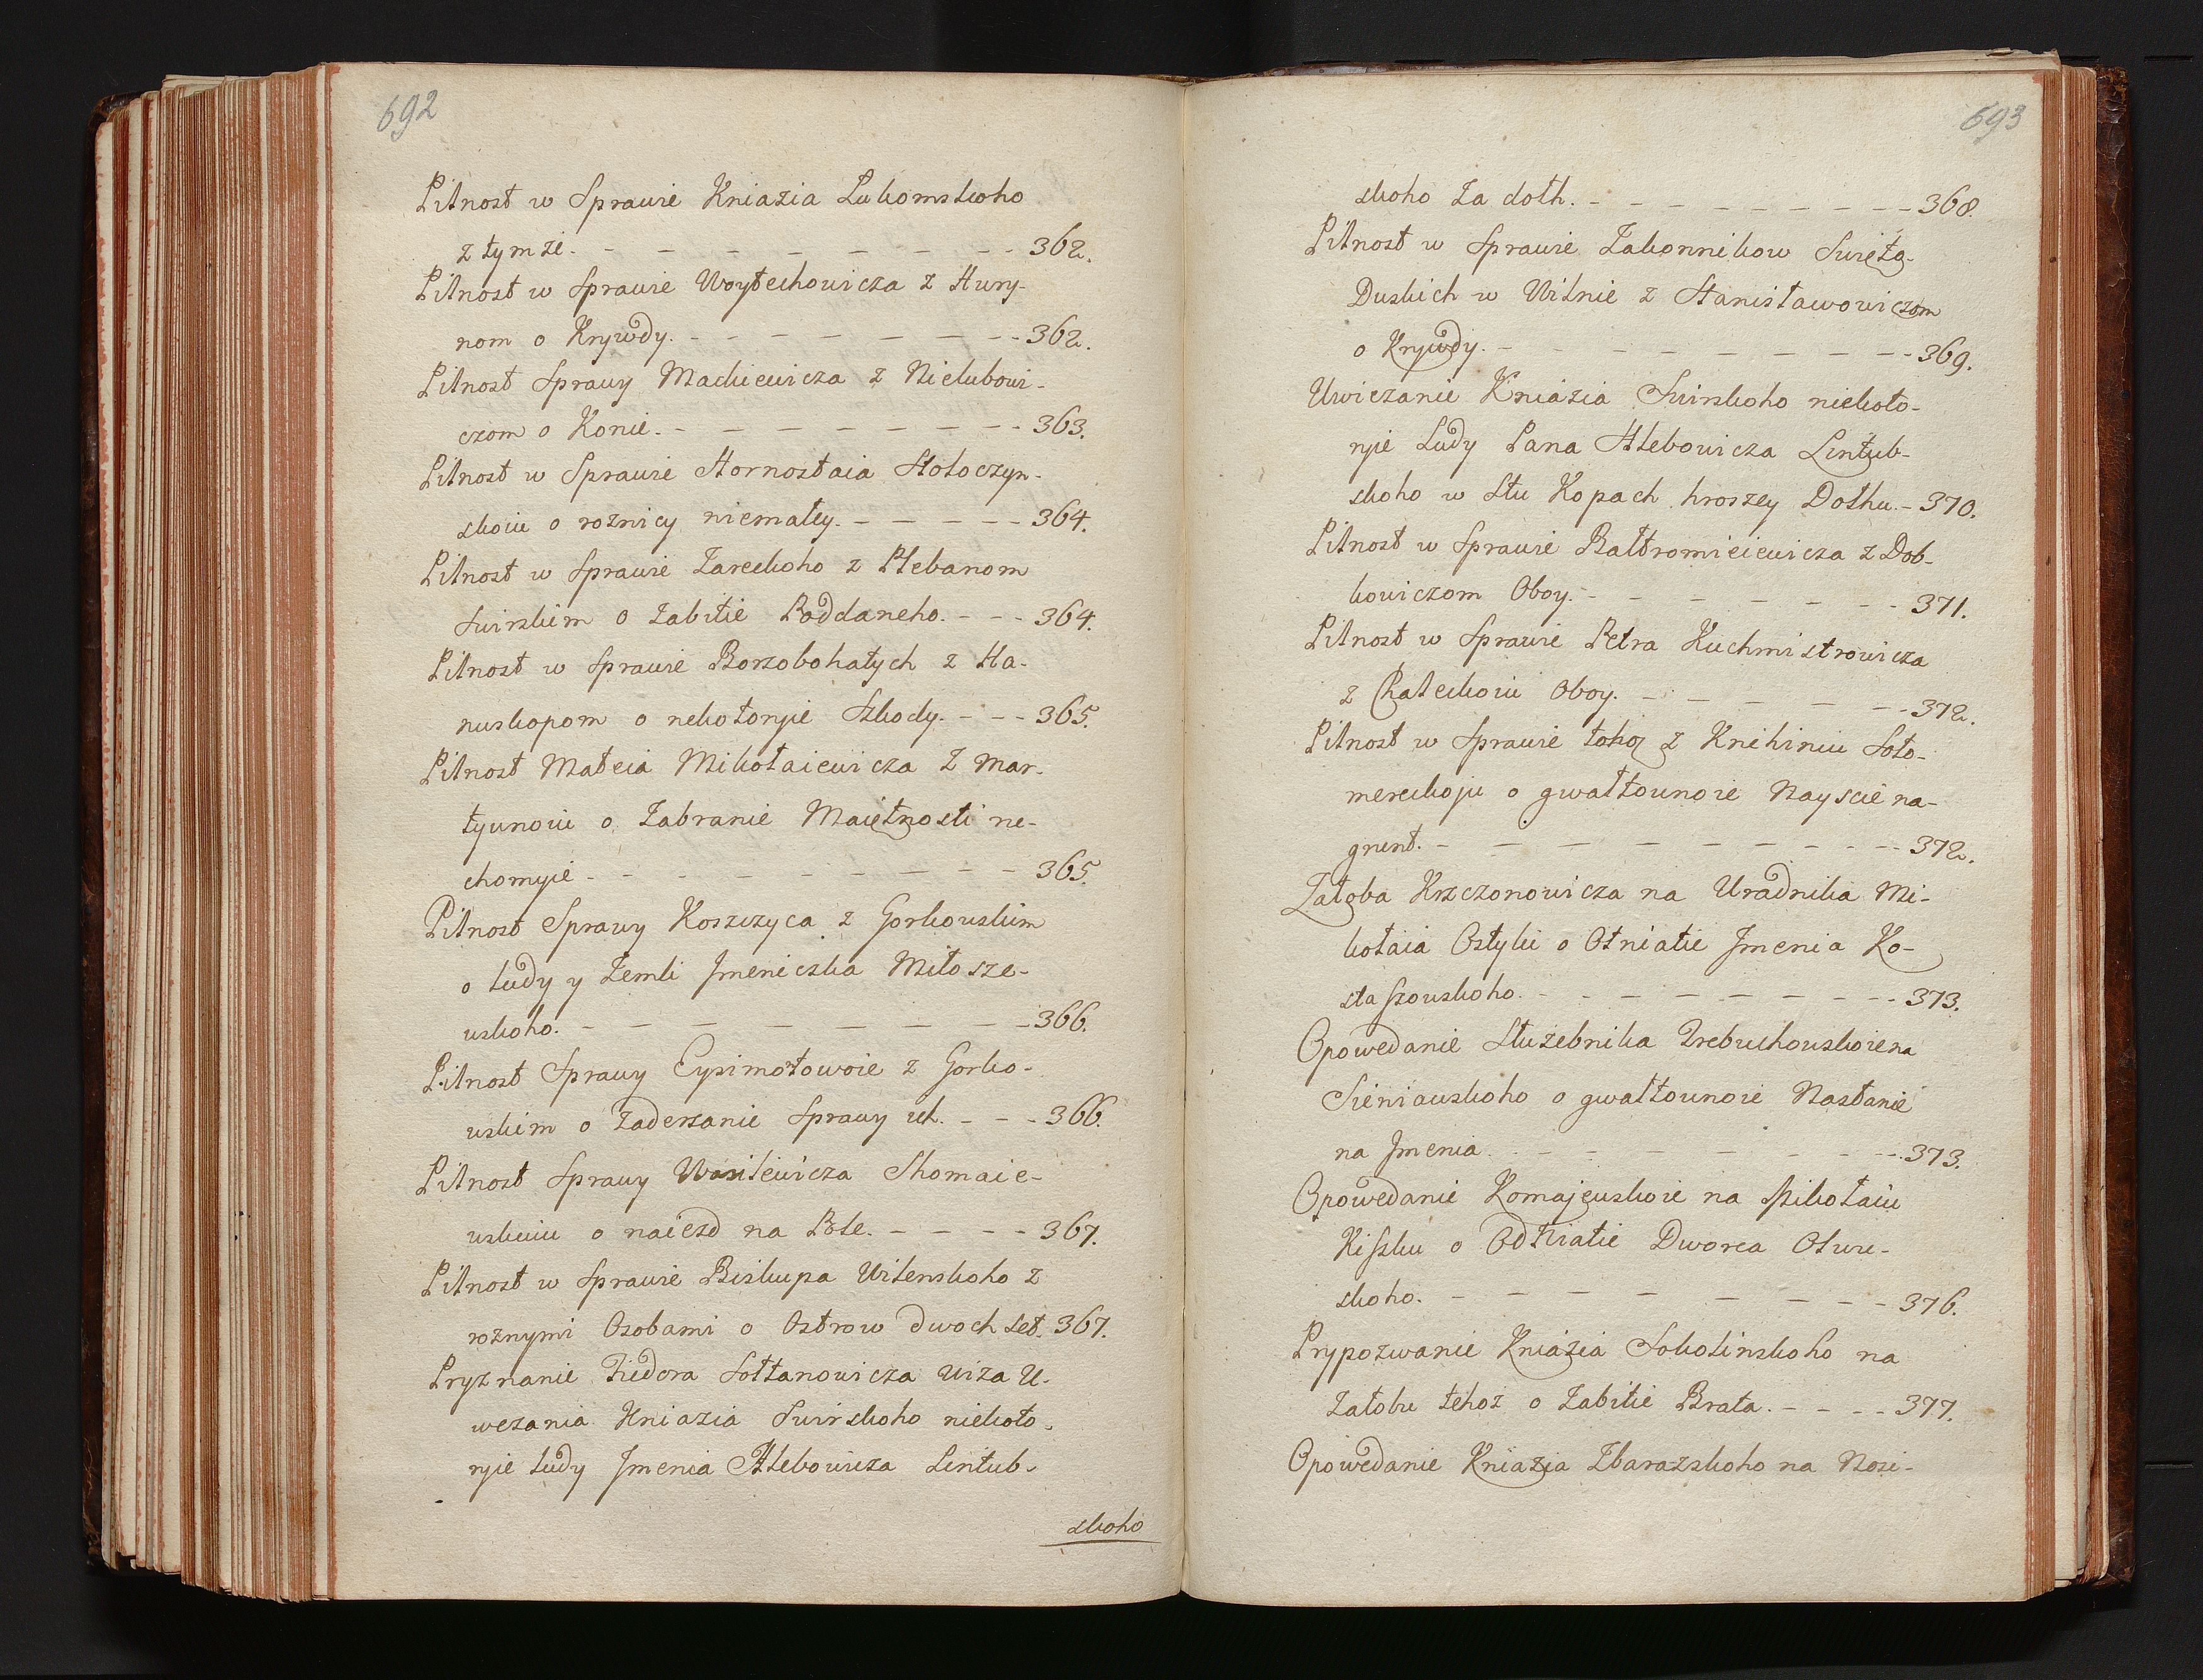 692
Pilnost w Sprawie Kniazia Lukomskoho
z tymże. - - - - - - - - 362.
Pilnost w Sprawie Woytechowicza z Hury-
nom o Krywdy. - - - - - - - 362.
Pilnost Sprawy Mackiewicza z Nielubowi-
czom o Konie. - - - - - - - - 363.
Pilnost w Sprawie Hornostaia Holoczyn-
skoiu o roznicy niemałey. - - - - - 364.
Pilnost w Sprawie Zareckoho z Plebanom
Swirskim o Zabitie Poddaneho. - - - 364.
Pilnost w Sprawie Borzobohatych z Ha-
nuskopom o nekotoryie Szkody. - - - 365.
Pilnost Mateia Mikołaiewicza z Mar-
tynowiu o Zabranie Maiętnosti ne-
chomyie - - - - - - - - - 365.
Pilnost Sprawy Koszczyca z Gorkowskim
o ludy y Zemli Jmeniczka Miłosze-
wskoho. - - - - - - - - 366.
Pilnost Sprawy Eysimotowoie z Gorko-
wskim o Zaderzanie Sprawy ich. - - - 366.
Pilnost Sprawy Wasilewicza Shomaie-
wskuiu o naiezd na Pole. - - - - 367.
Pilnost w Sprawie Biskupa Wilenskoho z
roznymi Osobami o Ostrow dwoch set. 367.
Pryznanie Fiedora Sołtanowicza Wiza U-
wezania Kniazia Swirskoho niekoto-
ryie ludy Jmenia Hlebowicza Lintub-
skoho
693
skoho Za dołh. - - - - - - - - - 368.
Pilnost w Sprawie Zakonnikow Swięto-
Duskich w Wilnie z Stanisławowiczom
o Krywdy. - - - - - - - - - 369.
Uwiezanie Kniazia Swirskoho niekoto-
ryie Ludy Pana Hlebowicza Lintub-
skoho w Stu Kopach hroszey Dołhu. - 370.
Pilnost w Sprawie Baltromieiewicza z Dob-
kowiczom Oboy. - - - - - - - - 371.
Pilnost w Sprawie Petra Kuchmistrowicza
z Rateckoiu Oboy. - - - - - - - 372.
Pilnost w Sprawie tohoż z Knehiniu Soło-
mereckoju o gwałtownoie Nayscie na-
grunt. - - - - - - - - - 372.
Załoba Krzczonowicza na Uradnika Mi-
kołaia Ostyki o Otniatie Jmenia Ko-
staszowskoho. - - - - - - - - 373.
Opowedanie Służebnika Trebuchowskoie na
Sieniawskoho o gwałtownoie Nastanie
na Jmenia. - - - - - - - - 373.
Opowedanie Komajewskoie na Mikołaiu
Kiszku o Odniatie Dworca Olwie-
skoho. - - - - - - - - 376.
Prypozwanie Kniazia Sokolinskoho na
Załobu tehoż o Zabitie Brata. - - - - 377.
Opowedanie Kniazia Zbarazskoho na Nosi-